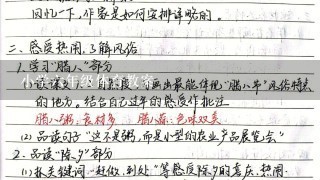 回忆一下,作家是如何安排详略的。
二、感受热闹,了解风俗
1.学习"腊八"部分
(1)读课文
画出最能体现"腊八节"风俗特点
的地方。结合自己过年的感受作批注
腊八粥:食材多 腊八蒜:色味双美
(2)品读句子"这不是粥,而是小型的农业产品展览会"
2.品读"除夕"部分
(1)抓关键词"赶做、到处"等感受除夕的喜庆、热闹